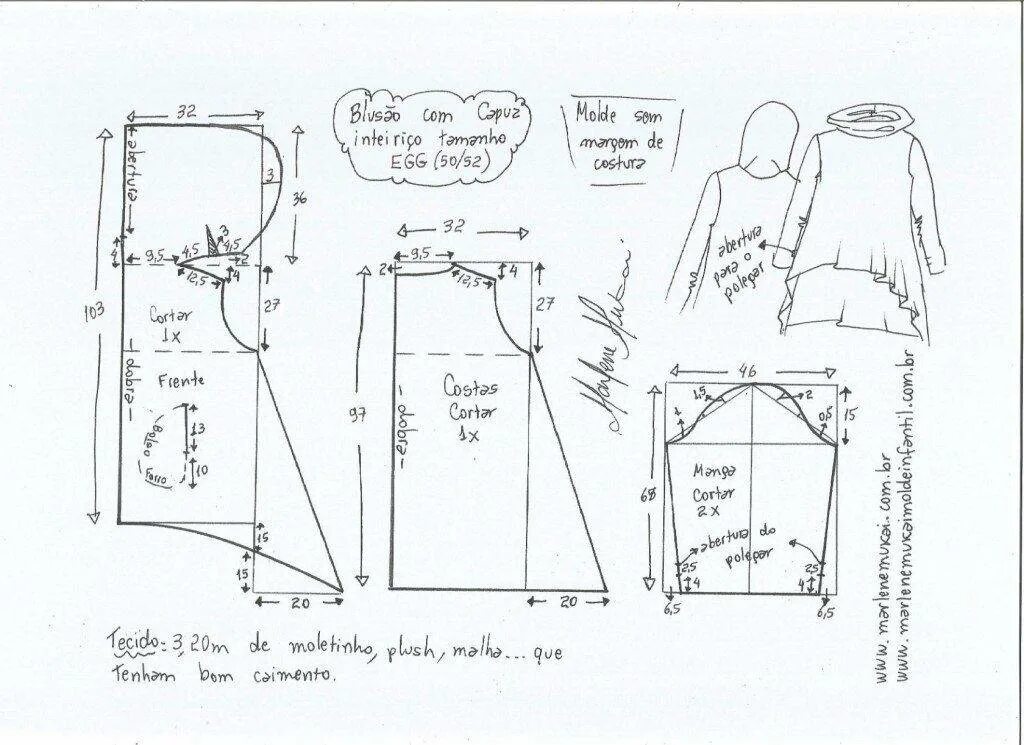 Blusão com Capuz
inteiriço tamanho
EGG (50/52)
Molde sem
margem de
costura
32
abertura
103
3
36
3
9,5
4,5
4,5
2
4
12,5
4
27
Cortar
1x
dobra
Frente
Bolso
Forro
13
10
15
15
20
32
9,5
2
12,5
4
27
97
dobra
Costas
Cortar
1x
20
Marlene Mukai
abertura
para o
polegar
46
1,5
2
1
0,5
15
68
Manga
Cortar
2x
abertura do
polegar
2,5
4
6,5
25
4
6,5
www.marlenemukai.com.br
www.marlenemukaimoldeinfantil.com.br
Tecido: 3,20m de moletinho, plush, malha... que
tenham bom caimento.